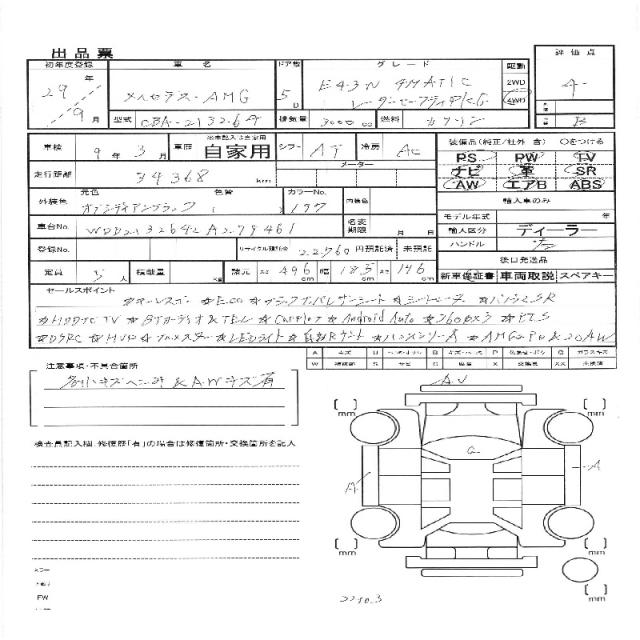 出品票
初年度登録 車名 ドア数 グレード 駆動 評価点
29年 メルセデス-AMG 5D E43 4MATIC 2WD 4
9月 レーダーセーフティPKG 4WD
型式 CBA-213264 排気量 3000cc 燃料 ガソリン B
車検 9年3月 車歴 自家用 シフト AT 冷房 AC
装備品(純正/社外 含) ○をつける
走行距離 34368 km メーター
PS PW TV
ナビ 革 SR
AW エアB ABS
外装色 元色 色替 カラーNo. 内装色
オブシディアンブラック ( ) 197
輸入車のみ
モデル年式 年
車台No. WDD2132642A279461 名変期限 月 日
輸入区分 ディーラー
登録No. リサイクル預託金 22760 円預託済 未預託
ハンドル 右
定員 5人 積載量 Kg 諸元 長さ 496 cm 幅 185 cm 高さ 146 cm
後日発送品
新車保証書 車両取説 スペアキー
セールスポイント
★キーレスゴー ★ECO ★ブラックナパレザーシート ★シートヒーター ★パノラマSR
★HDD TC TV ★BTオーディオ&TEL ★CarPlay ★Android Auto ★360°カメラ ★ETS
★DSRC ★HUD ★ブルメスター ★LEDライト ★自動トランク ★AMGエアロ&20AW
注意事項・不具合箇所
各小キズヘコミ&AWキズ有
検査員記入欄、修復歴「有」の場合は修復箇所・交換箇所を記入
AU
G
A
A
mm
mm
mm
mm
mm
FW
2210.3